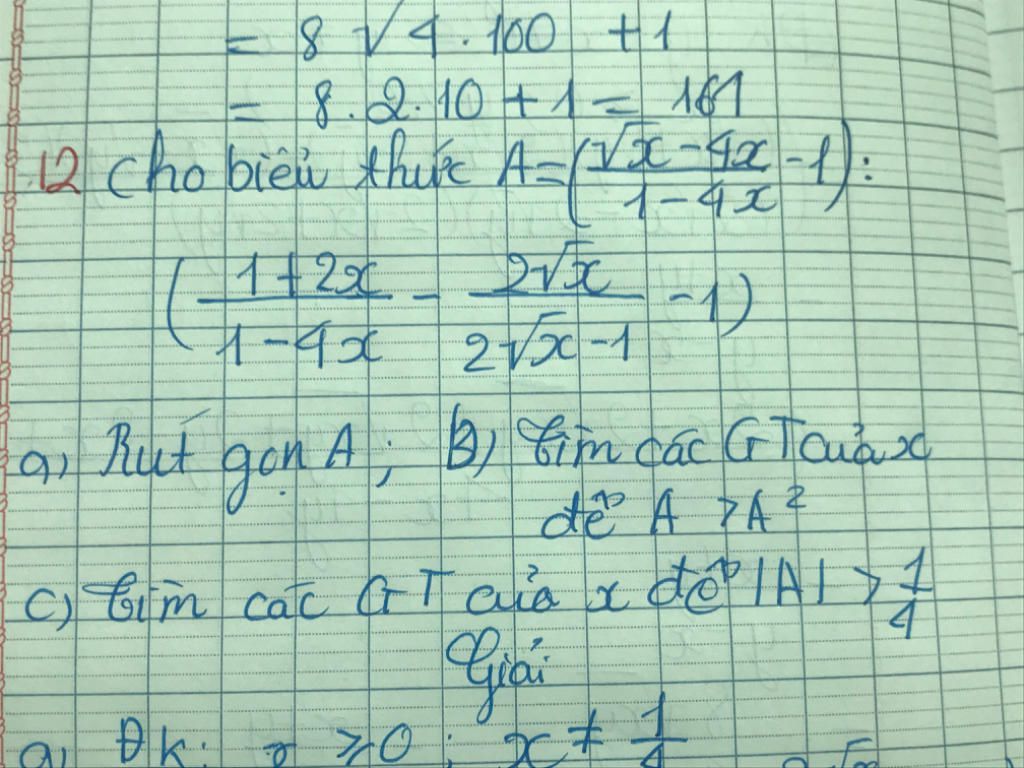 = 8 √4 . 100 + 1
= 8 . 2 . 10 + 1 = 161
12 Cho biểu thức A = ( (√x - 4x)/(1 - 4x) - 1 ) :
( (1 + 2x)/(1 - 4x) - (2√x)/(2√x - 1) - 1 )
a) Rút gọn A ; b) Tìm các GT của x
để A > A²
c) Tìm các GT của x để |A| > 1/4
Giải
a) Đk: x ≥ 0 ; x ≠ 1/4